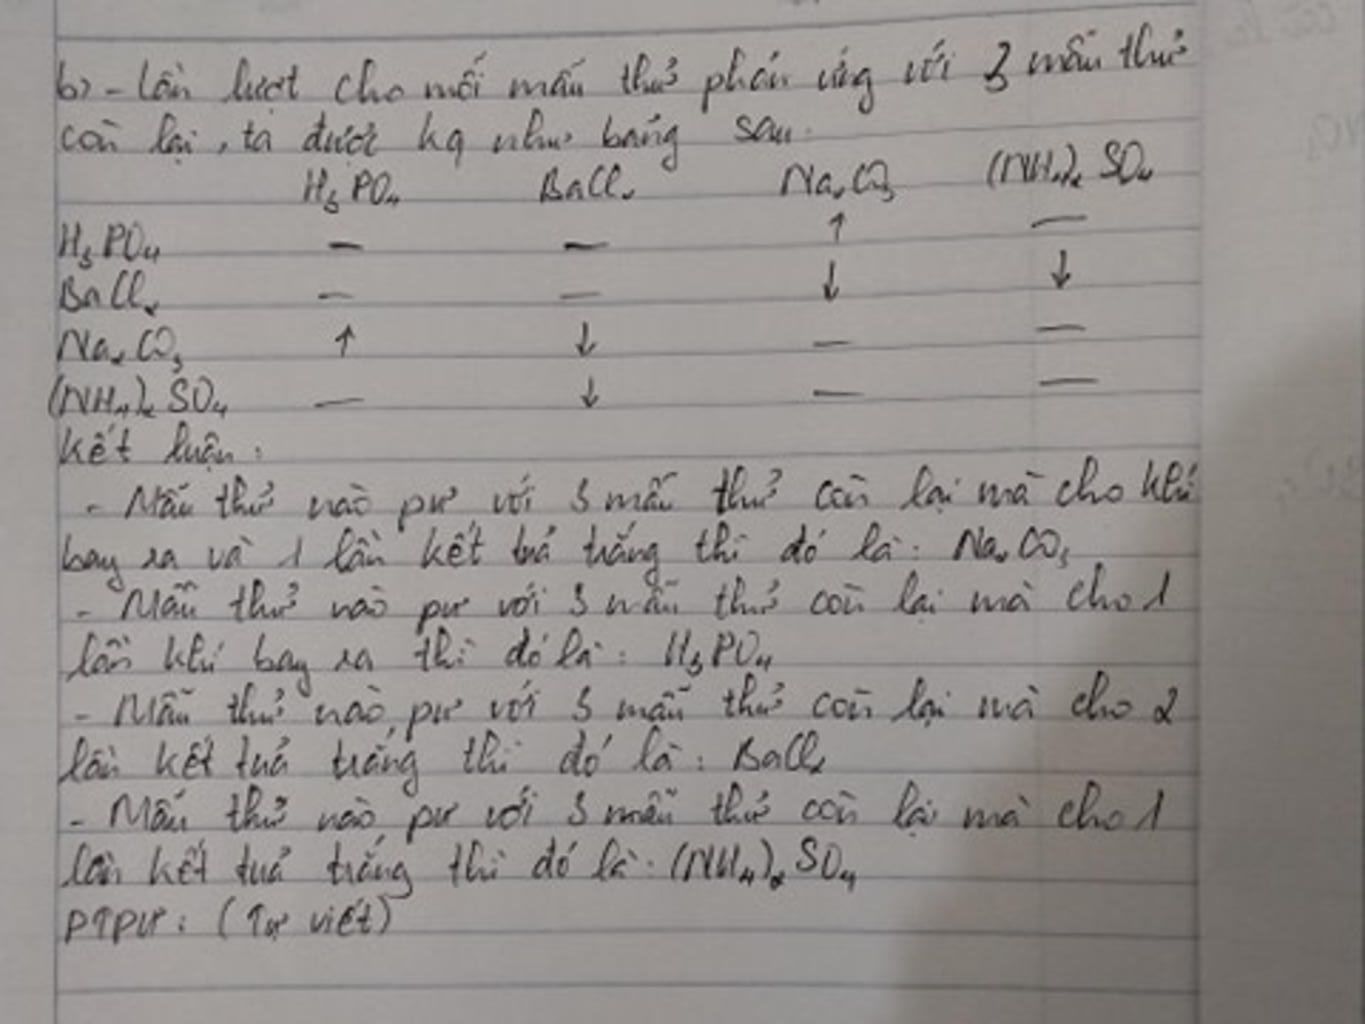 b) - Lần lượt cho mỗi mẫu thử phản ứng với 3 mẫu thử
còn lại, ta được kq như bảng sau:
H₃PO₄ BaCl₂ Na₂CO₃ (NH₄)₂SO₄
H₃PO₄ — — ↑ —
BaCl₂ — — ↓ ↓
Na₂CO₃ ↑ ↓ — —
(NH₄)₂SO₄ — ↓ — —
Kết luận:
- Mẫu thử nào pư với 3 mẫu thử còn lại mà cho khí
bay ra và 1 lần kết tủa trắng thì đó là: Na₂CO₃
- Mẫu thử nào pư với 3 mẫu thử còn lại mà cho 1
lần khí bay ra thì đó là: H₃PO₄
- Mẫu thử nào pư với 3 mẫu thử còn lại mà cho 2
lần kết tủa trắng thì đó là: BaCl₂
- Mẫu thử nào pư với 3 mẫu thử còn lại mà cho 1
lần kết tủa trắng thì đó là: (NH₄)₂SO₄
PTPƯ: (Tự viết)